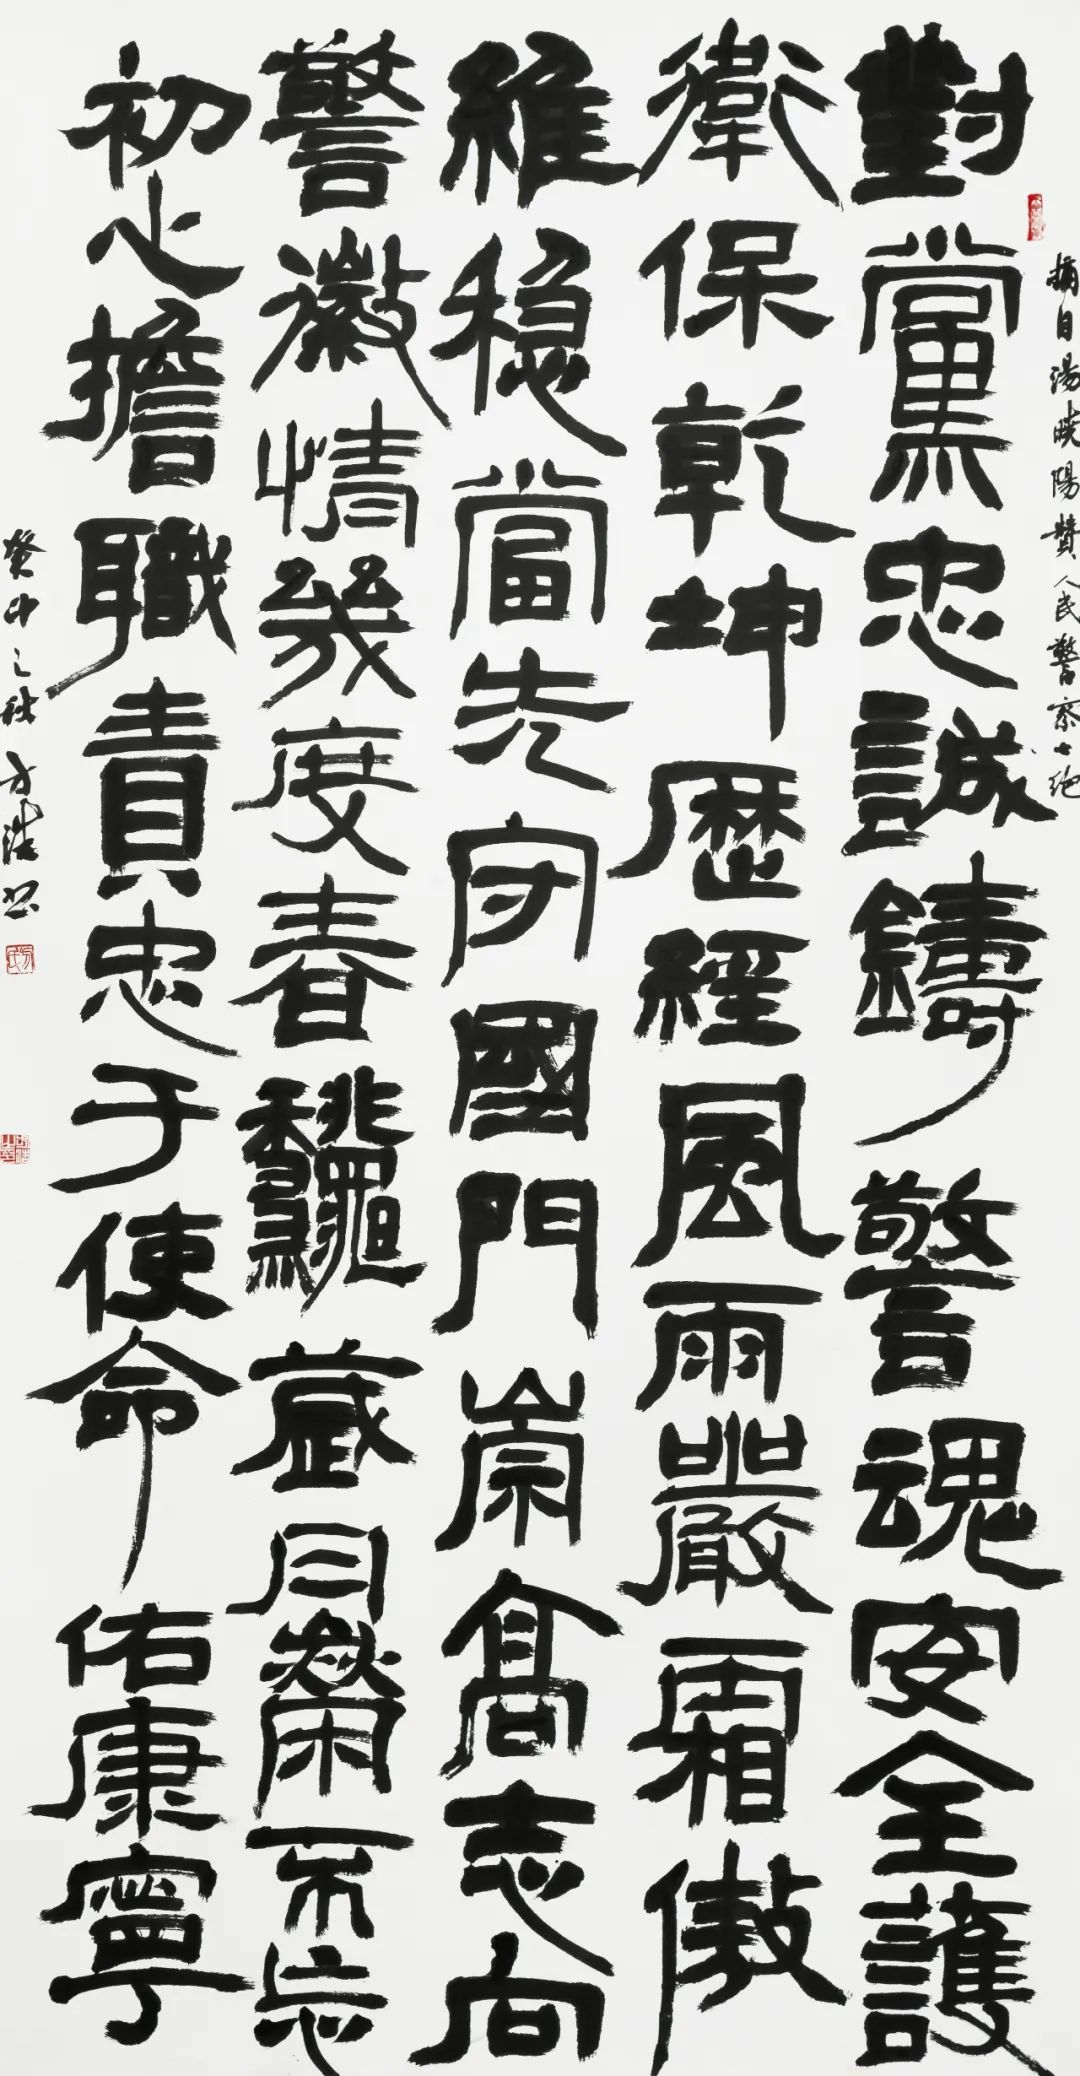 摘自湯曉陽贊人民警察七絕
對黨忠誠鑄警魂安全護
衛保乾坤歷經風雨嚴霜傲
維稳當先守國門崇高志向
警徽情幾度春龝歲月榮不忘
初心擔職責忠于使命佑康寧
癸卯之秋方浩书